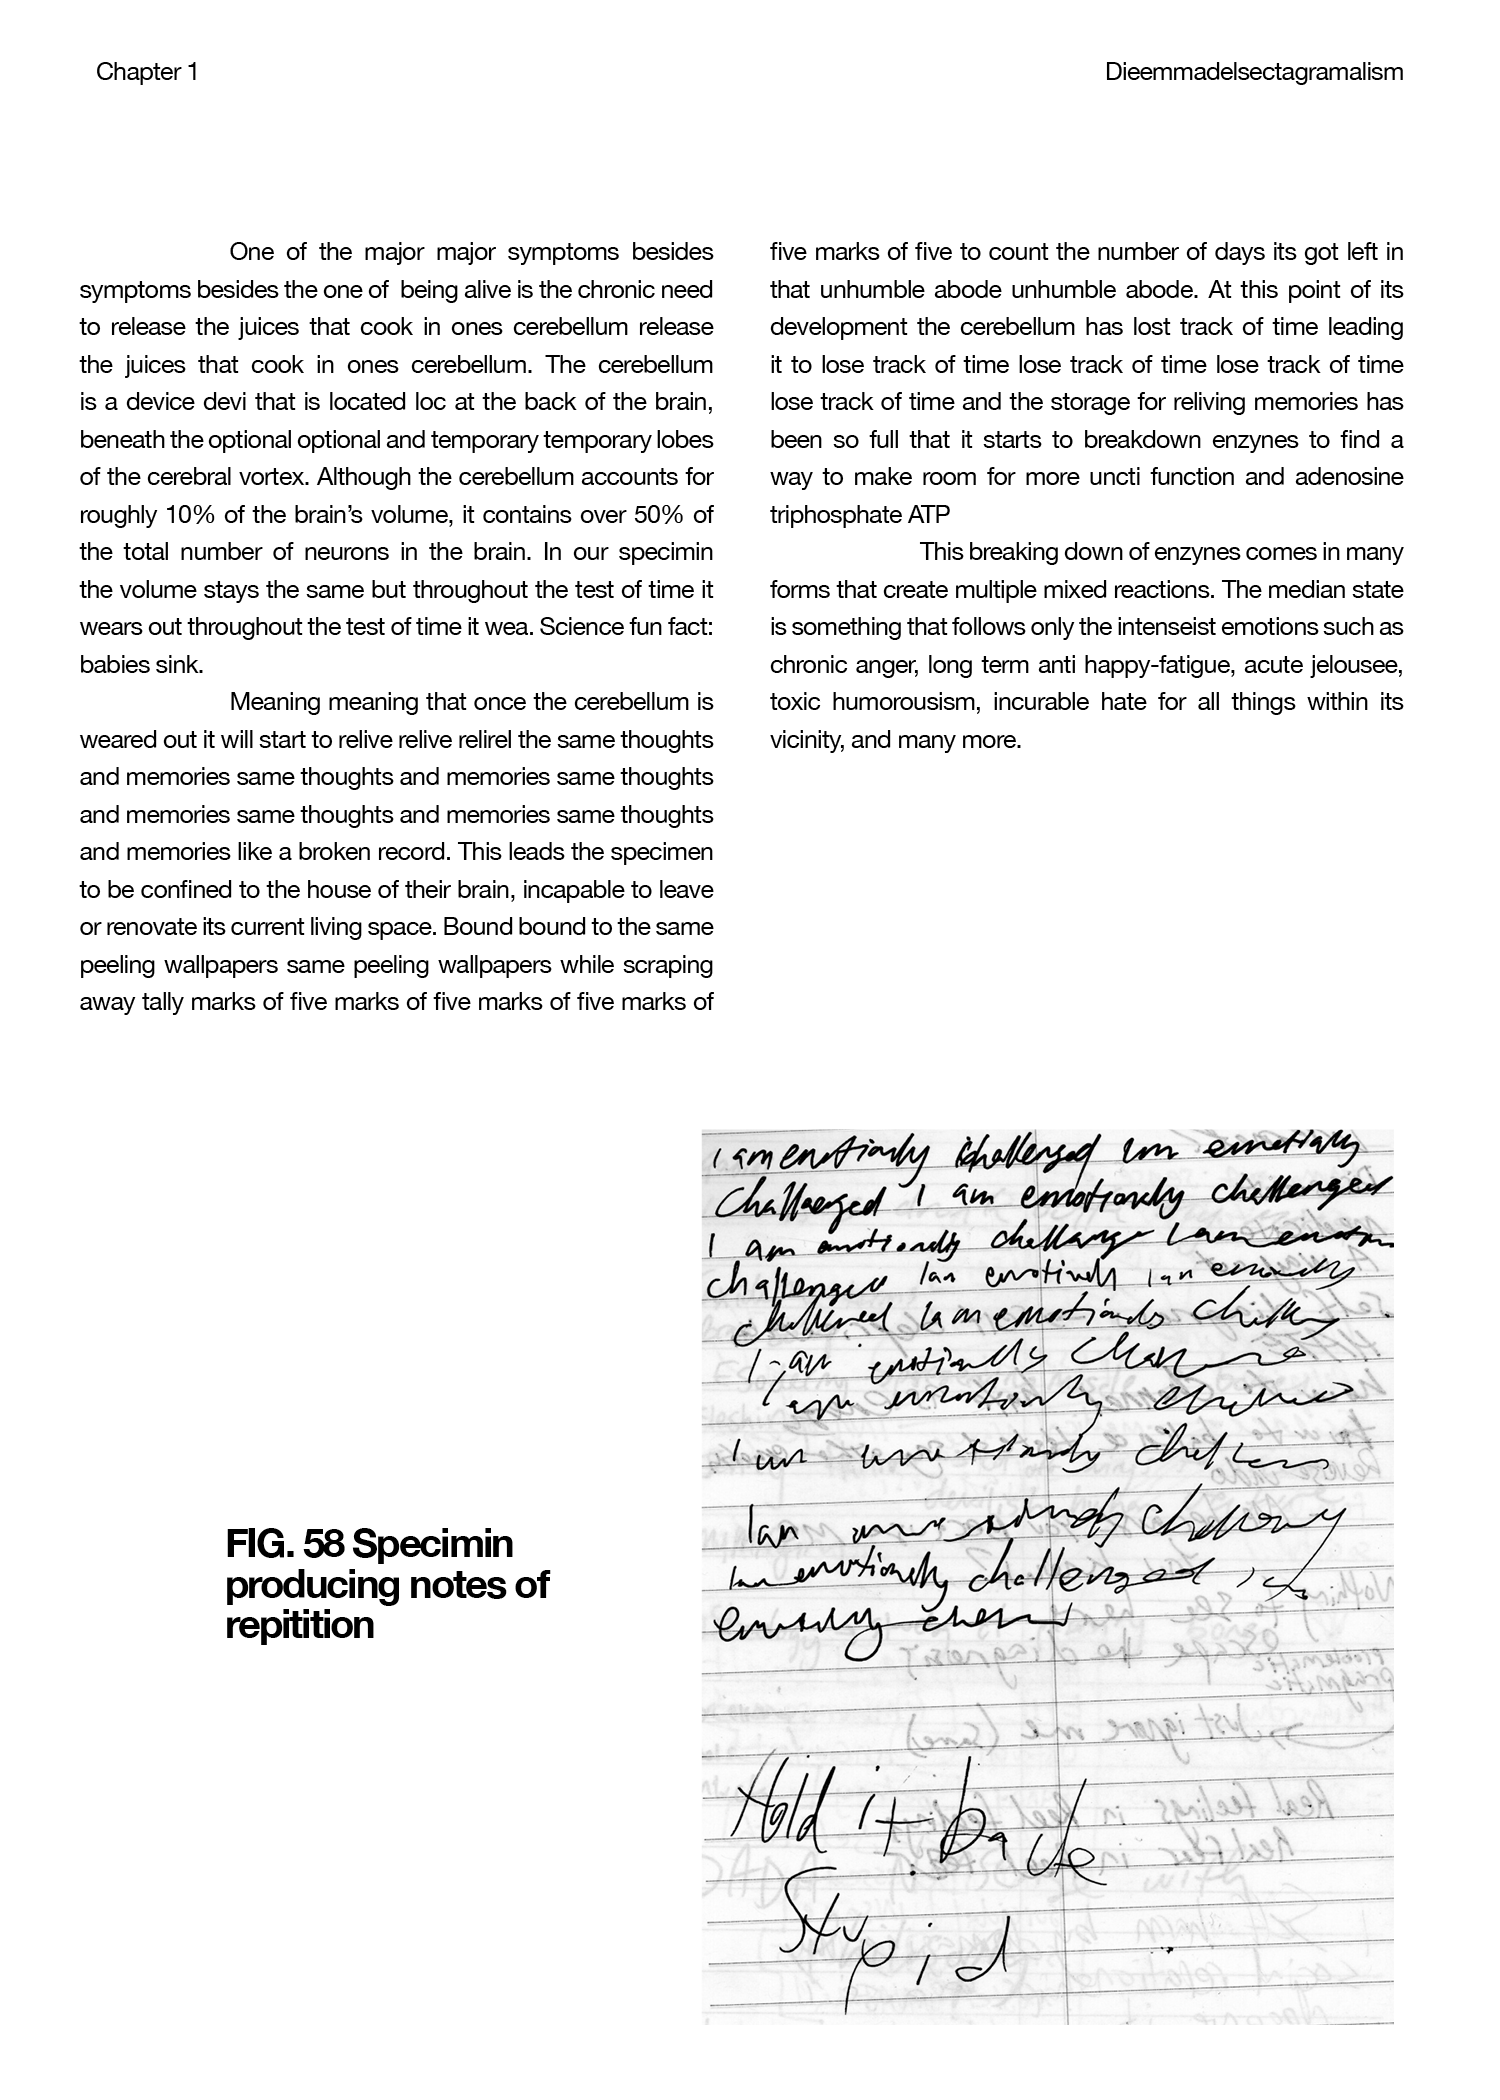 Chapter 1
Dieemmadelsectagramalism
One of the major major symptoms besides
symptoms besides the one of  being alive is the chronic need
to release the juices that cook in ones cerebellum release
the juices that cook in ones cerebellum. The cerebellum
is a device devi that is located loc at the back of the brain,
beneath the optional optional and temporary temporary lobes
of the cerebral vortex. Although the cerebellum accounts for
roughly 10% of the brain’s volume, it contains over 50% of
the total number of neurons in the brain. In our specimin
the volume stays the same but throughout the test of time it
wears out throughout the test of time it wea. Science fun fact:
babies sink.
Meaning meaning that once the cerebellum is
weared out it will start to relive relive relirel the same thoughts
and memories same thoughts and memories same thoughts
and memories same thoughts and memories same thoughts
and memories like a broken record. This leads the specimen
to be confined to the house of their brain, incapable to leave
or renovate its current living space. Bound bound to the same
peeling wallpapers same peeling wallpapers while scraping
away tally marks of five marks of five marks of five marks of
five marks of five to count the number of days its got left in
that unhumble abode unhumble abode. At this point of its
development the cerebellum has lost track of time leading
it to lose track of time lose track of time lose track of time
lose track of time and the storage for reliving memories has
been so full that it starts to breakdown enzynes to find a
way to make room for more uncti function and adenosine
triphosphate ATP
This breaking down of enzynes comes in many
forms that create multiple mixed reactions. The median state
is something that follows only the intenseist emotions such as
chronic anger, long term anti happy-fatigue, acute jelousee,
toxic humorousism, incurable hate for all things within its
vicinity, and many more.
FIG. 58 Specimin
producing notes of
repitition
I am emotionly challenged
I am emotionly challenged
I am
challenged
I am
I am
am
I
challenged
Hold it back
Stupid